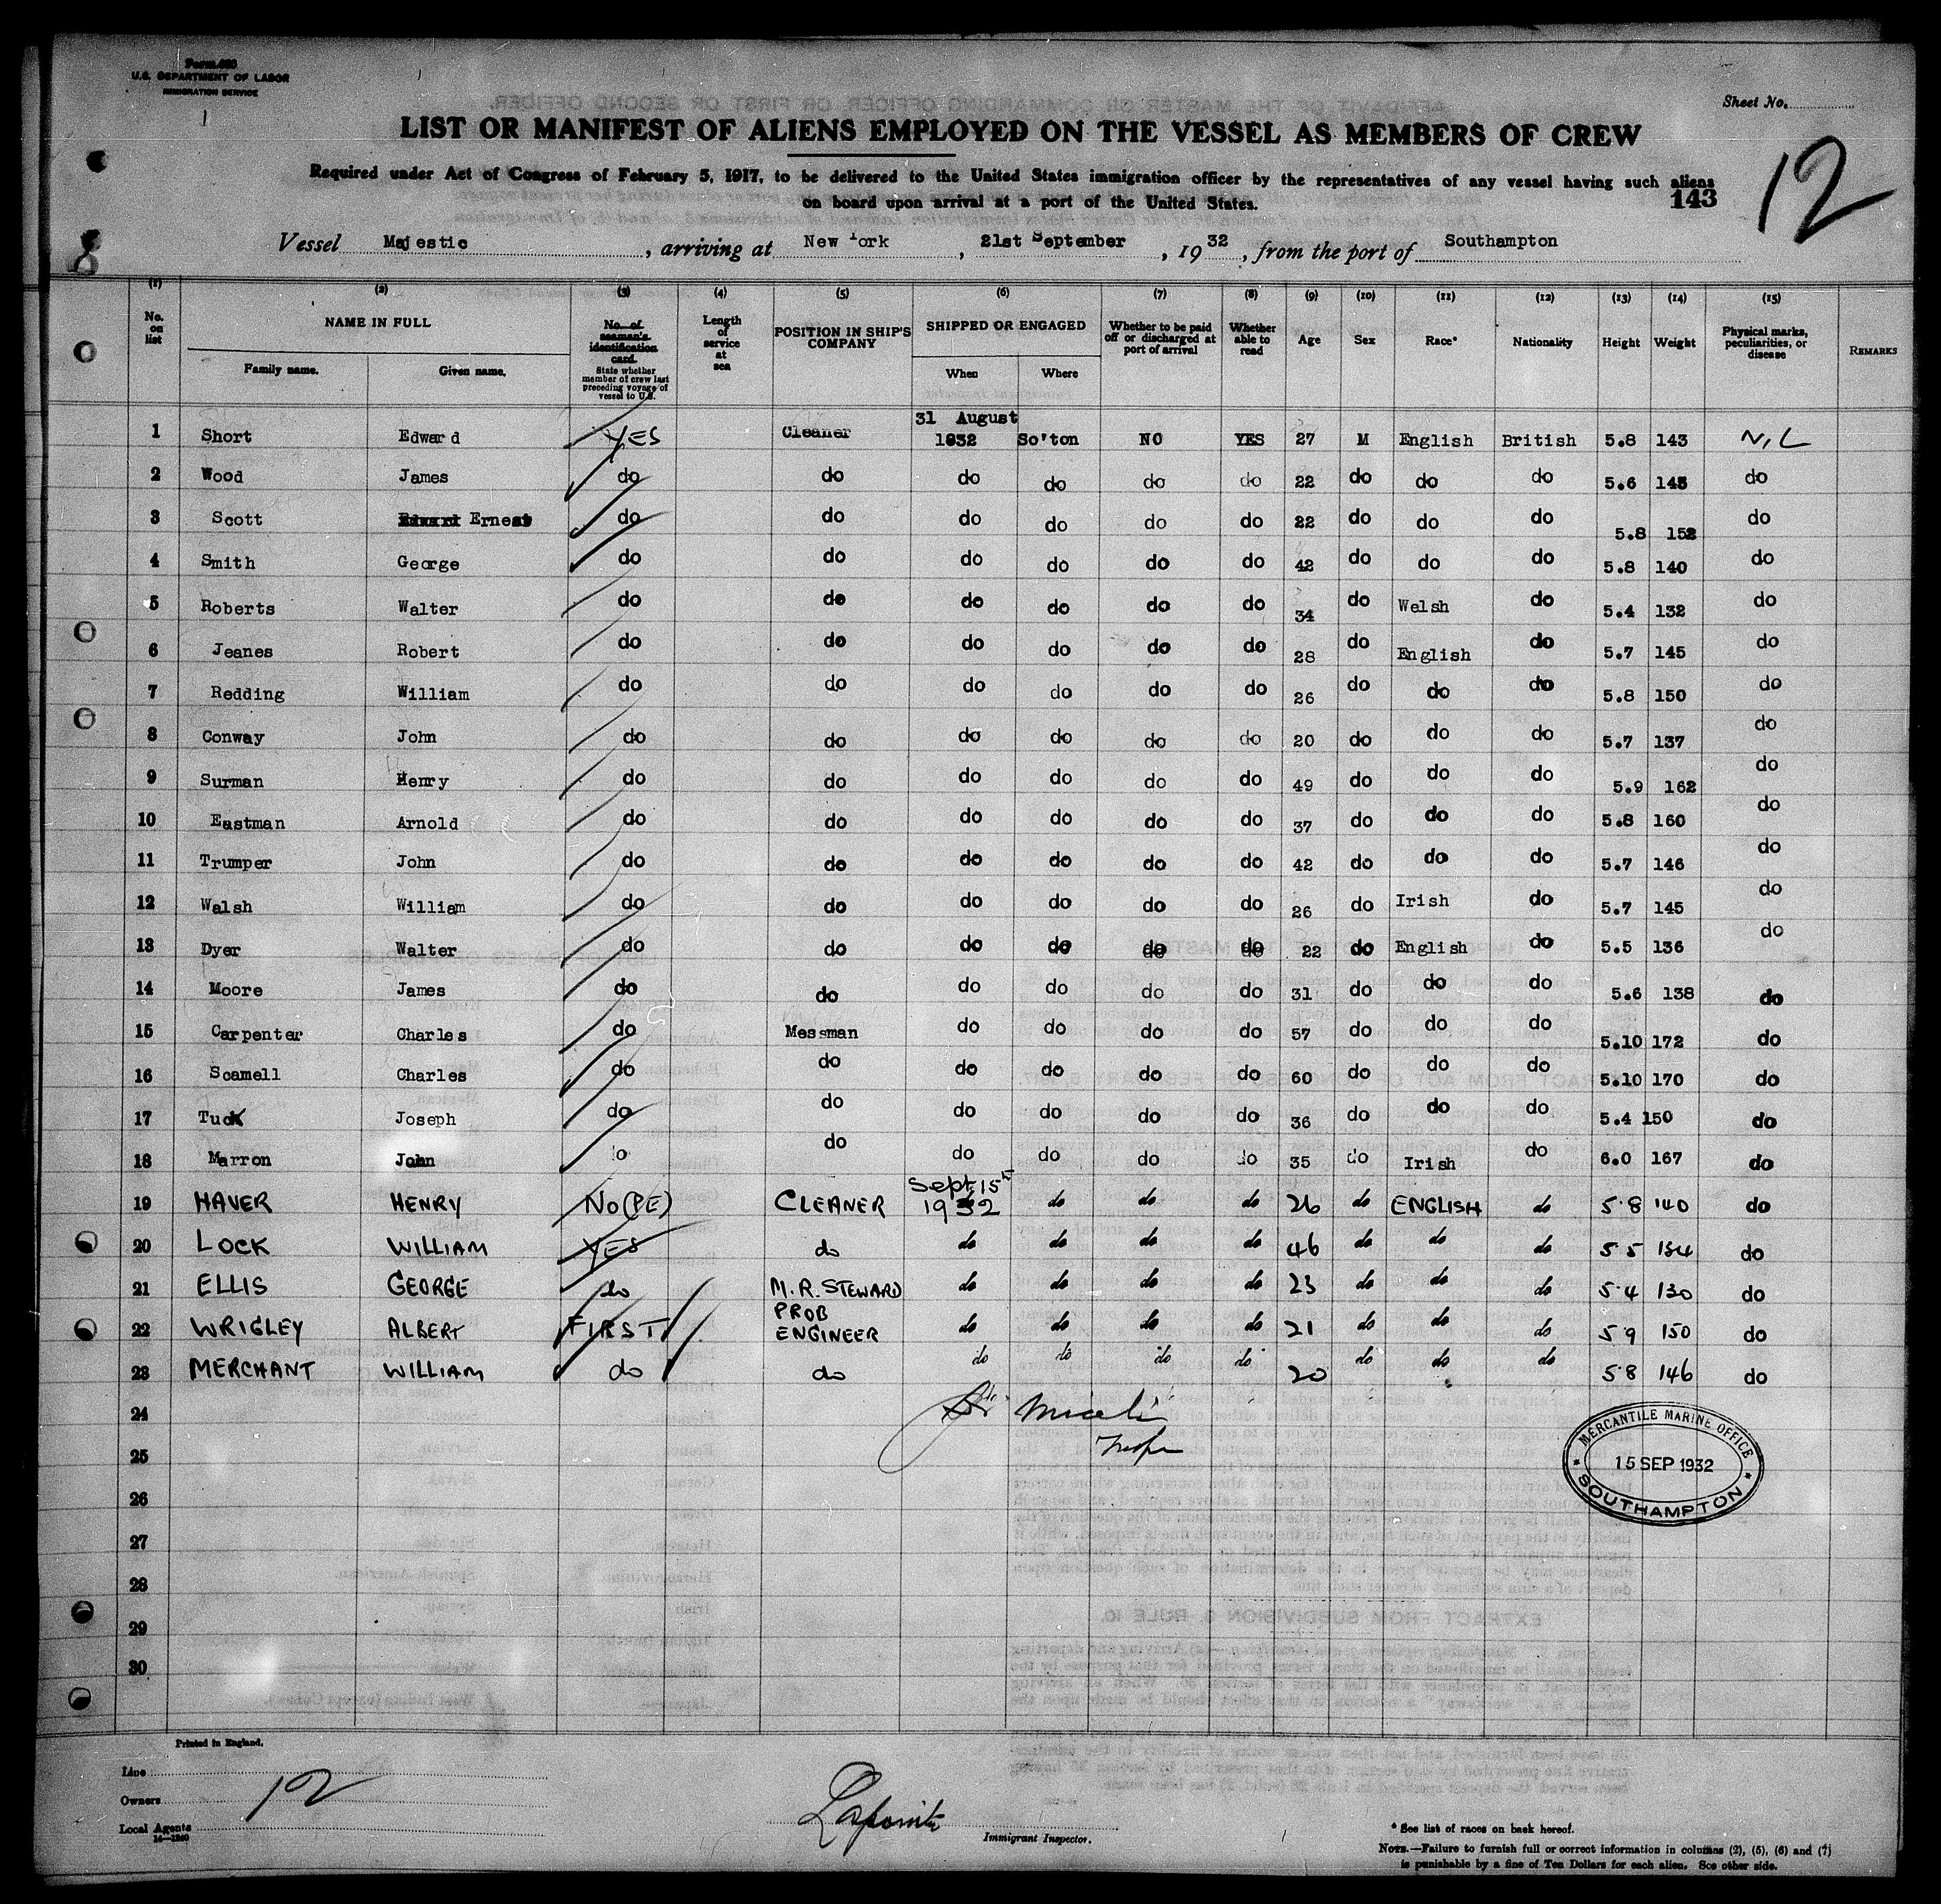 Form 680
U.S. DEPARTMENT OF LABOR
IMMIGRATION SERVICE
Sheet No.
LIST OR MANIFEST OF ALIENS EMPLOYED ON THE VESSEL AS MEMBERS OF CREW
12
Required under Act of Congress of February 5, 1917, to be delivered to the United States immigration officer by the representatives of any vessel having such aliens
on board upon arrival at a port of the United States.
143
Vessel Majestic, arriving at New York, 21st September, 1932, from the port of Southampton
(1) (2) (3) (4) (5) (6) (7) (8) (9) (10) (11) (12) (13) (14) (15)
No. on list NAME IN FULL Family name. Given name. No. of seaman's identification card. State whether member of crew last preceding voyage of vessel to U.S. Length of service at sea POSITION IN SHIP'S COMPANY SHIPPED OR ENGAGED When Where Whether to be paid off or discharged at port of arrival Whether able to read Age Sex Race* Nationality Height Weight Physical marks, peculiarities, or disease REMARKS
1 Short Edward YES Cleaner 31 August 1932 So'ton NO YES 27 M English British 5.8 143 NIL
2 Wood James do do do do do do 22 do do do 5.6 145 do
3 Scott Edward Ernest do do do do do do 22 do do do 5.8 152 do
4 Smith George do do do do do do 42 do do do 5.8 140 do
5 Roberts Walter do do do do do do 34 do Welsh do 5.4 132 do
6 Jeanes Robert do do do do do do 28 do English do 5.7 145 do
7 Redding William do do do do do do 26 do do do 5.8 150 do
8 Conway John do do do do do do 20 do do do 5.7 137 do
9 Surman Henry do do do do do do 49 do do do 5.9 162 do
10 Eastman Arnold do do do do do do 37 do do do 5.8 160 do
11 Trumper John do do do do do do 42 do do do 5.7 146 do
12 Walsh William do do do do do do 26 do Irish do 5.7 145 do
13 Dyer Walter do do do do do do 22 do English do 5.5 136 do
14 Moore James do do do do do do 31 do do do 5.6 138 do
15 Carpenter Charles do Messman do do do do 57 do do do 5.10 172 do
16 Scamell Charles do do do do do do 60 do do do 5.10 170 do
17 Tuck Joseph do do do do do do 36 do do do 5.4 150 do
18 Marron John do do do do do do 35 do Irish do 6.0 167 do
19 HAVER HENRY No (PE) CLEANER Sept 15th 1932 do do do 26 do ENGLISH do 5.8 140 do
20 LOCK WILLIAM YES do do do do do 46 do do do 5.5 134 do
21 ELLIS GEORGE do M.R. STEWARD do do do do 23 do do do 5.4 130 do
22 WRIGLEY ALBERT FIRST PROB ENGINEER do do do do 21 do do do 5.9 150 do
23 MERCHANT WILLIAM do do do do do do 20 do do do 5.8 146 do
24
25
26
27
28
29
30
MERCANTILE MARINE OFFICE
15 SEP 1932
SOUTHAMPTON
Printed in England.
Line
Owners
Local Agents
12
Immigrant Inspector.
* See list of races on back hereof.
NOTE.—Failure to furnish full or correct information in columns (2), (5), (6) and (7)
is punishable by a fine of Ten Dollars for each alien. See other side.